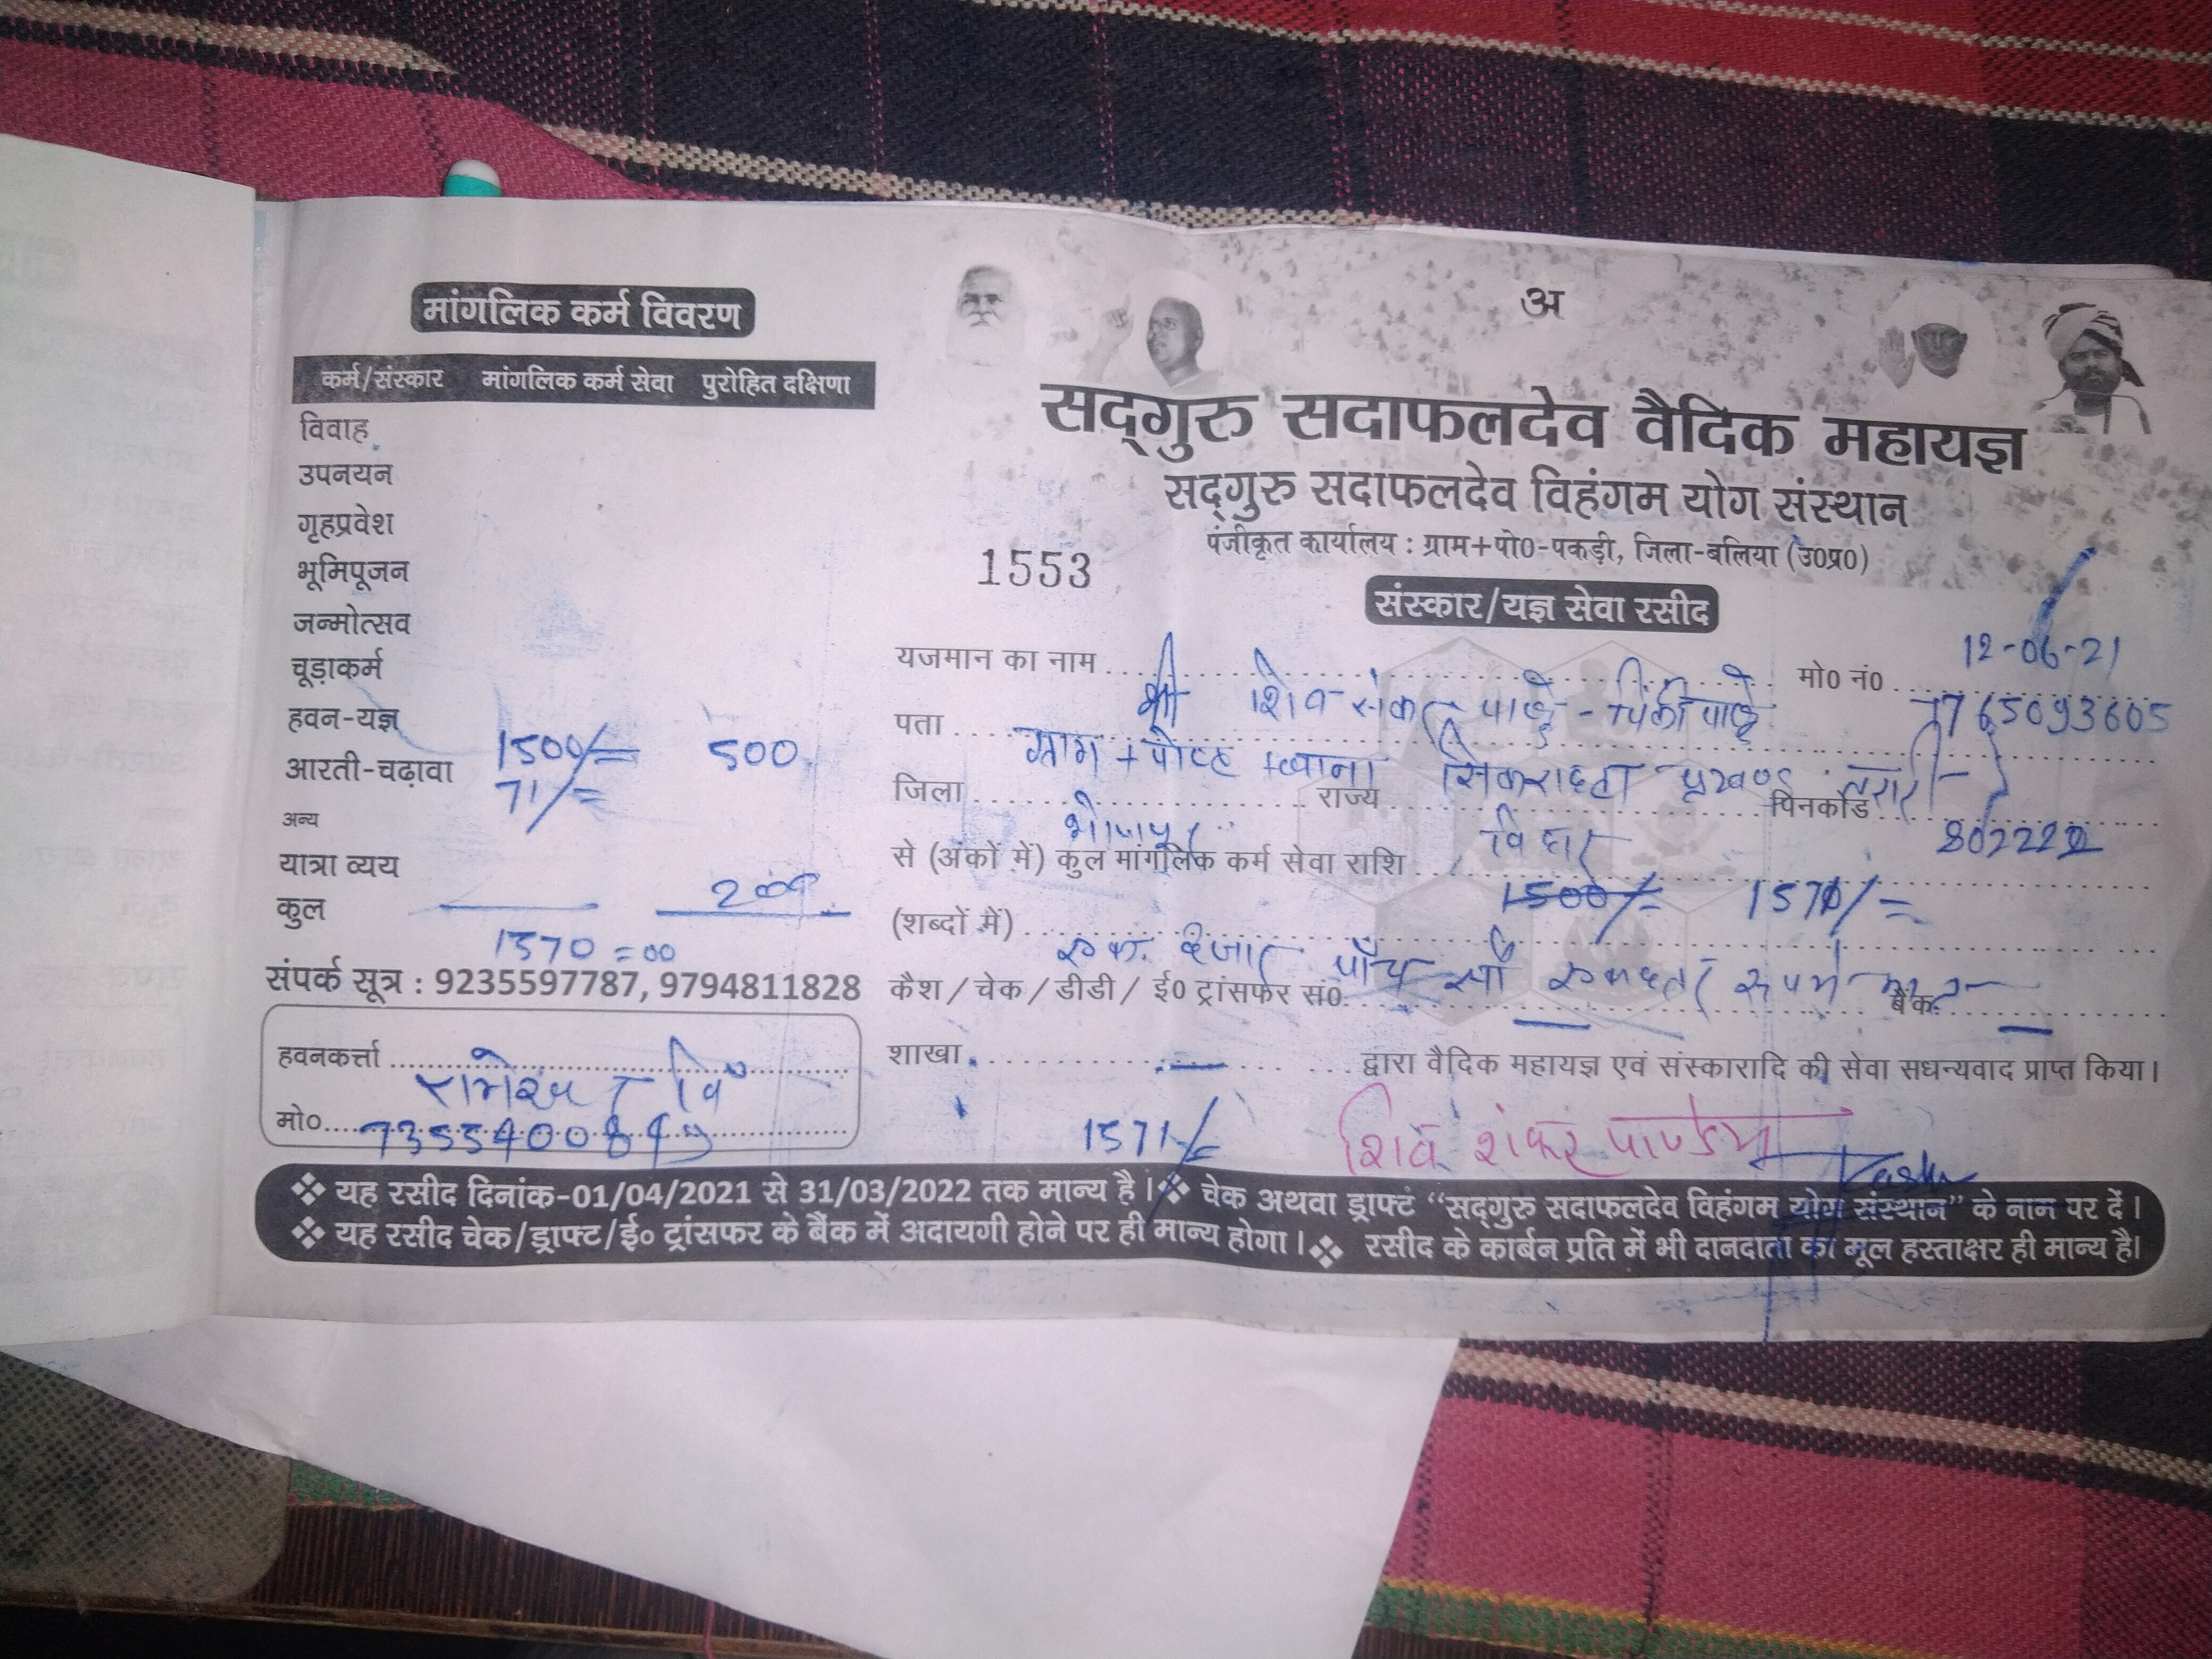 मांगलिक कर्म विवरण
कर्म/संस्कार मांगलिक कर्म सेवा पुरोहित दक्षिणा
विवाह
उपनयन
गृहप्रवेश
भूमिपूजन
जन्मोत्सव
चूड़ाकर्म
हवन-यज्ञ 1500/= 500
आरती-चढ़ावा 71/=
अन्य
यात्रा व्यय 200
कुल 1570=00
संपर्क सूत्र : 9235597787, 9794811828
हवनकर्त्ता
मो०
अ
सद्‌गुरु सदाफलदेव वैदिक महायज्ञ
सद्‌गुरु सदाफलदेव विहंगम योग संस्थान
पंजीकृत कार्यालय : ग्राम+पो0-पकड़ी, जिला-बलिया (उ0प्र0)
1553
संस्कार/यज्ञ सेवा रसीद
12-06-21
यजमान का नाम श्री शिव संकर पाण्डे - पिंकी पाण्डे मो0 नं0 7765093605
पता ग्राम + पोस्ट + थाना सिकरहटा प्रखण्ड तरारी
जिला भोजपुर राज्य बिहार पिनकोड 802222
से (अंकों में) कुल मांगलिक कर्म सेवा राशि 1500/= 1571/=
(शब्दों में) एक हजार पाँच सौ एकहतर रुपये मात्र
कैश / चेक / डीडी / ई0 ट्रांसफर सं0 बैंक
शाखा द्वारा वैदिक महायज्ञ एवं संस्कारादि की सेवा सधन्यवाद प्राप्त किया।
1571/= शिव शंकर पाण्डेय
❖ यह रसीद दिनांक-01/04/2021 से 31/03/2022 तक मान्य है। ❖ चेक अथवा ड्राफ्ट “सद्‌गुरु सदाफलदेव विहंगम योग संस्थान” के नाम पर दें।
❖ यह रसीद चेक/ड्राफ्ट/ई० ट्रांसफर के बैंक में अदायगी होने पर ही मान्य होगा। ❖ रसीद के कार्बन प्रति में भी दानदाता का मूल हस्ताक्षर ही मान्य है।